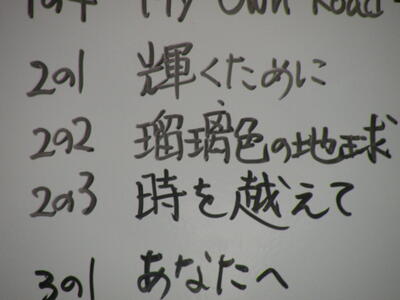 1の4 My Own Road
2の1 輝くために
2の2 瑠璃色の地球
2の3 時を越えて
3の1 あなたへ